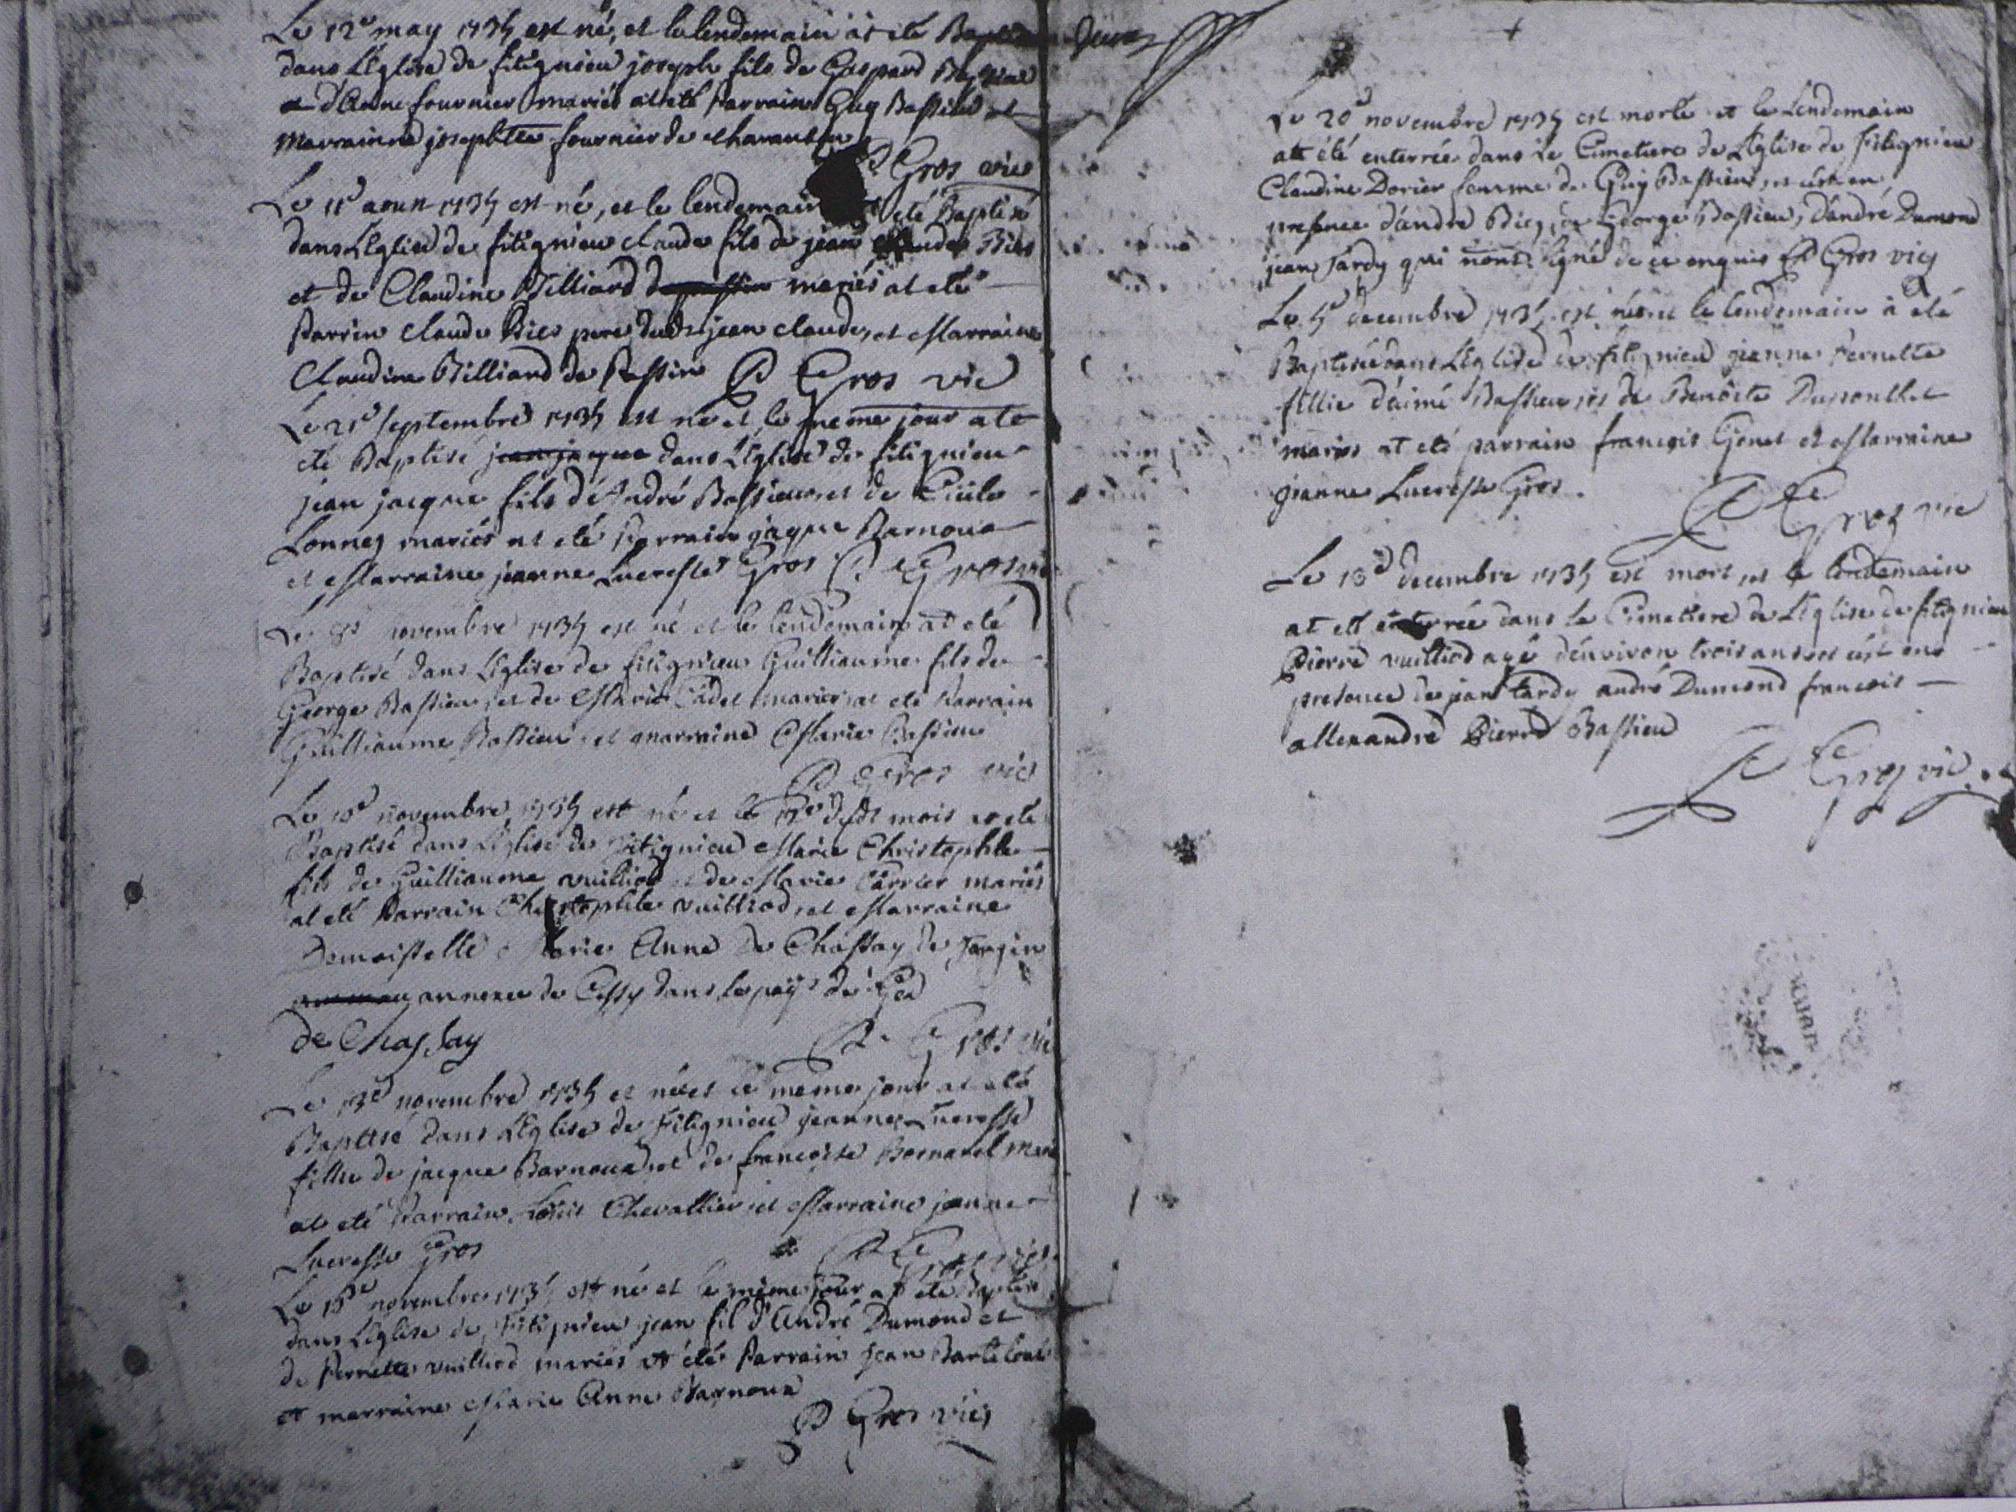 Le 12e may 1735 est né, et le lendemain at eté
dans L'Eglise de fitignieu joseph fils de Gaspard
et d'Anne fournier mariés at eté Parrain Guy Bassieu et
Marrainne josephtte fournier de
P Gros vic
Le 11e aoust 1735 est né, et le lendemain eté Baptisé
dans L'Eglise de fitignieu claude fils de jean claude Bies
et de Claudine Billiard mariés at eté
Parrin claude Bies pere dudt jean claude, et Marraine
Claudine Billiard de Passin P Gros vic
Le 21e septembre 1735 est né et le meme jour at
eté Baptisé jean jacque dans L'Eglise de fitignieu
jean jacque fils d'André Bassieu et de
mariés at eté Parrain jaque Barnoud
et Marraine jeanne Lucresse Gros P Gros vic
Le novembre 1735 est né et le lendemain at eté
Baptisé dans L'Eglise de fitignieu Guilliaume fils de
George Bassieu, et de Marie Cadet mariés at eté Parrain
Guilliaume Bassieu et marraine Marie Bassieu
P Gros vic
Le novembre, 1735 est né et le dudt mois at eté
Baptisé dans L'Eglise de fitignieu Marie Christophle
fils de Guilliaume vuilliod et de Marie Carrier mariés
at eté Parrain Christophle vuilliod, et Marraine
Demoiselle Marie Anne de Chassay de
annexe de Cessy dans le pays de Gex
De Chassay P Gros vic
Le 13e novembre 1735 et né et le meme jour at eté
Baptisé dans L'Eglise de fitignieu jeanne Lucresse
fillie de jacque Barnoud et de francoise
at eté Parrain Louis Chevallier et Marraine jeanne
Lucresse Gros P Gros vic
Le novembre 1735 est né et le même jour at eté Baptisé
dans L'Eglise de fitignieu jean fil d'André Dumond et
de Pernette vuilliod mariés at été Parrain jean
et marraine Marie Anne Barnoud
P Gros vic
Le 20e novembre 1735 est morte et le Lendemain
att été enterrée dans Le Cimetiere de L'Eglise de fitignieu
Claudine Dorier femme de Guy Bassieu, et cest en
presence d'andré Bies, de George Bassieu, d'andré Dumond
jean Tardy qui n'ont signé de ce enquis P Gros vic
Le 5e decembre 1735 est née et le lendemain à eté
Baptisée dans L'Eglise de fitignieu jeanne Pernette
fillie d'aimé Bassieu et de Benoite
mariés at eté parrain françois Genet et Marraine
jeanne Lucresse Gros.
P Gros vic
Le decembre 1735 est mort, et le lendemain
at ett enterrée dans le Cimetiere de L'Eglise de fitignieu
Pierre vuilliod agé d'environ trois ans et cest en
presence de jean tardy andré Dumond francois
allexandre Pierre Bassieu
P Gros vic